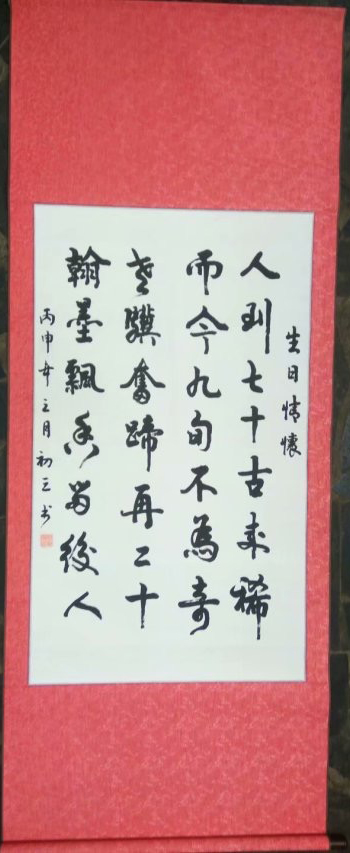 生日情懷
人到七十古來稀
而今九旬不為奇
老驥奮蹄再二十
翰墨飄香留後人
丙申年三月初三书